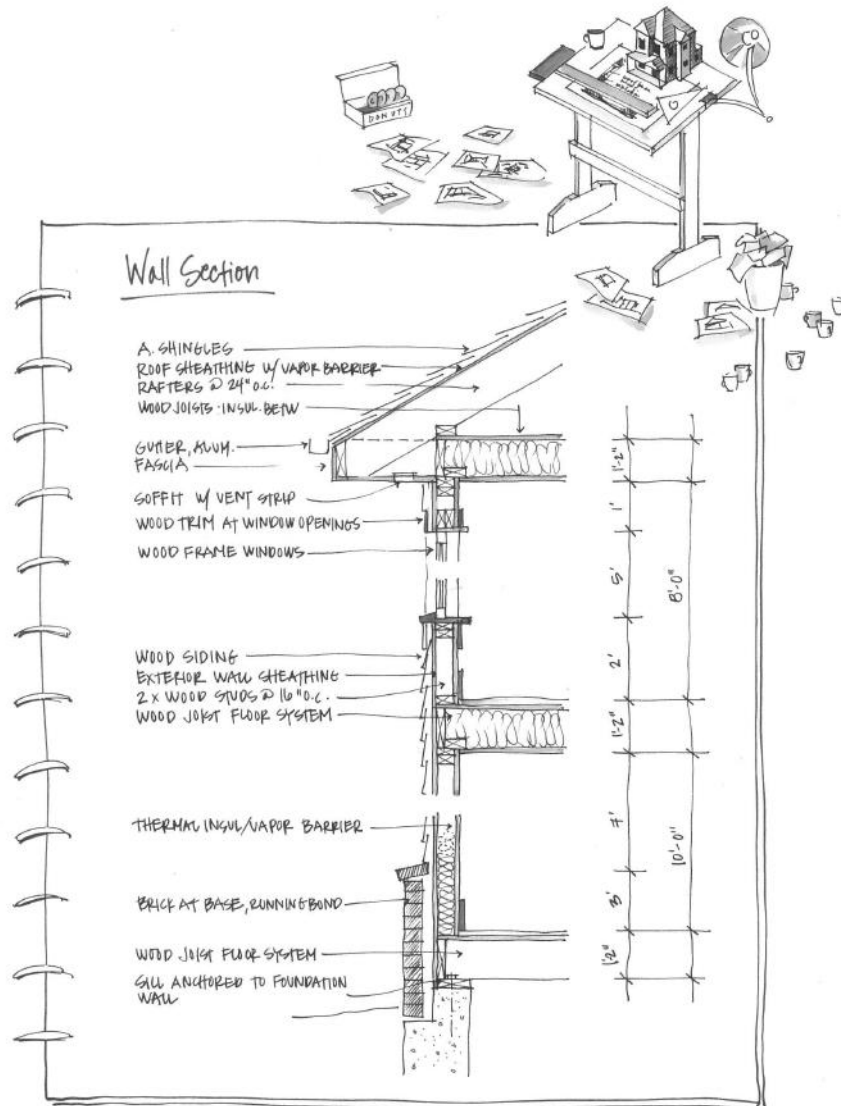 DONUTS
Wall Section
A. SHINGLES
ROOF SHEATHING W/ VAPOR BARRIER
RAFTERS @ 24" O.C.
WOOD JOISTS · INSUL. BETW
GUTTER, ALUM.
FASCIA
SOFFIT W/ VENT STRIP
WOOD TRIM AT WINDOW OPENINGS
WOOD FRAME WINDOWS
WOOD SIDING
EXTERIOR WALL SHEATHING
2 x WOOD STUDS @ 16" O.C.
WOOD JOIST FLOOR SYSTEM
THERMAL INSUL/VAPOR BARRIER
BRICK AT BASE, RUNNING BOND
WOOD JOIST FLOOR SYSTEM
SILL ANCHORED TO FOUNDATION
WALL
1'-2"
1'
5'
8'-0"
2'
1'-2"
7'
10'-0"
3'
1'2"